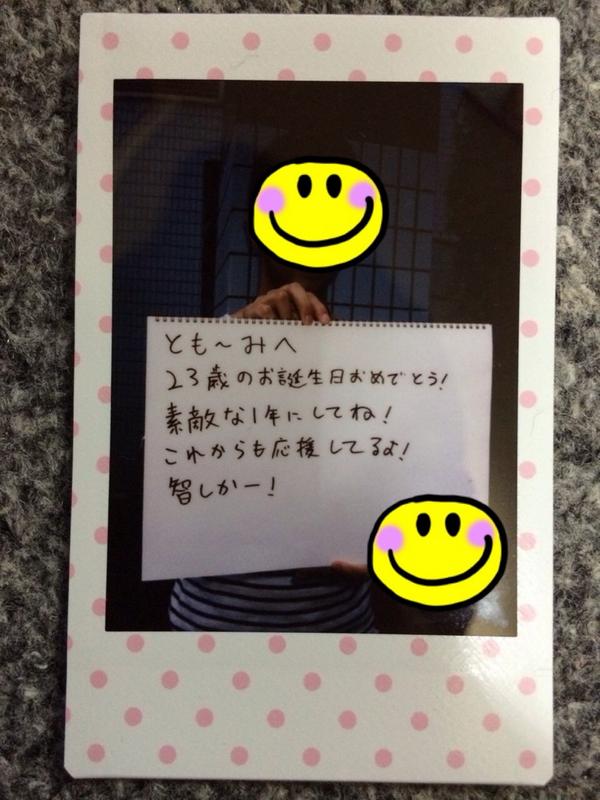 とも〜みへ
23歳のお誕生日おめでとう!
素敵な1年にしてね!
これからも応援してるよ!
智しかー!